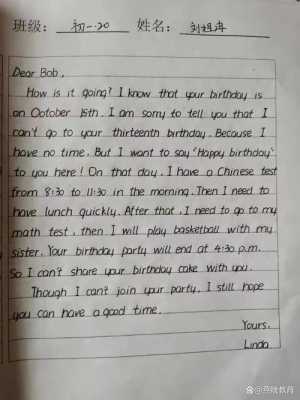 班级: 初一.20 姓名: 刘祖冉
Dear Bob,
How is it going? I know that your birthday is
on Ootober 15th. I am sorry to tell you that I
can't go to your thirteenth birthday. Because I
have no time. But I want to say "Happy birthday"
to you here! On that day, I have a Chinese test
from 8:30 to 11:30 in the morning. Then I need to
have lunch quickly. After that, I need to go to my
math test, then I will play basketball with my
sister. Your birthday party will end at 4:30 p.m.
So I can't share your birthday cake with you.
Though I can't join your party, I still hope
you can have a good time.
Yours,
Linda